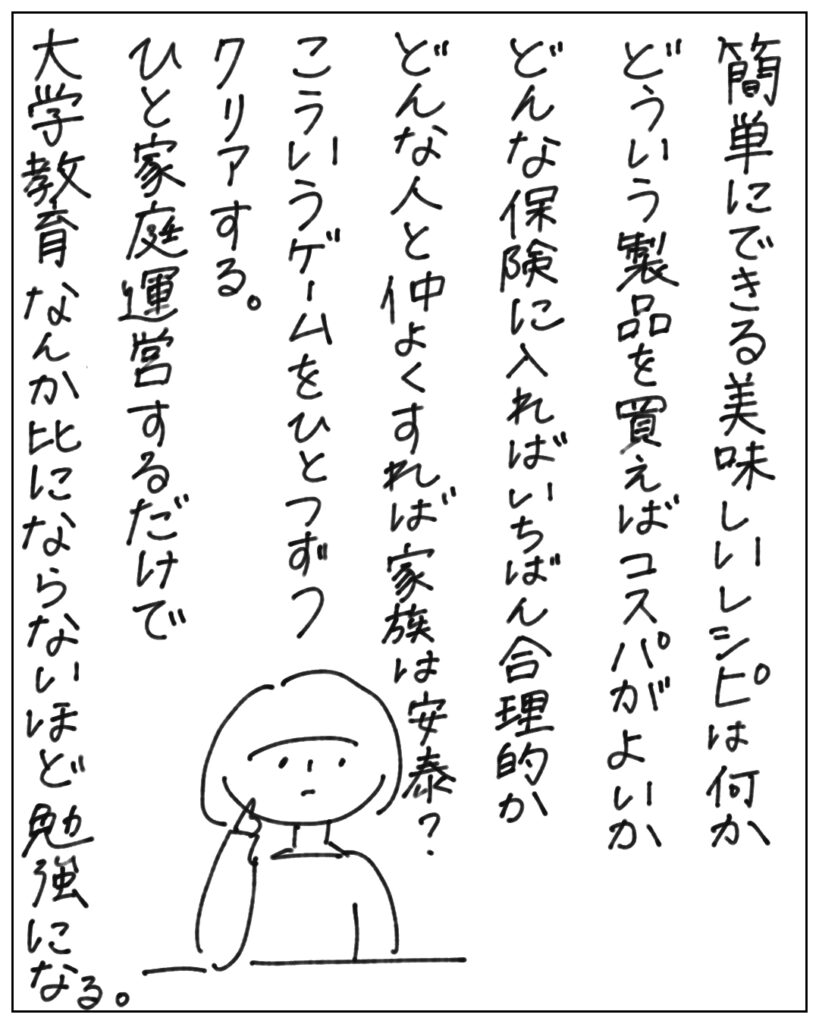 簡単にできる美味しいレシピは何か
どういう製品を買えばコスパがよいか
どんな保険に入ればいちばん合理的か
どんな人と仲よくすれば家族は安泰？
こういうゲームをひとつずつ
クリアする。
ひと家庭運営するだけで
大学教育なんか比にならないほど勉強になる。